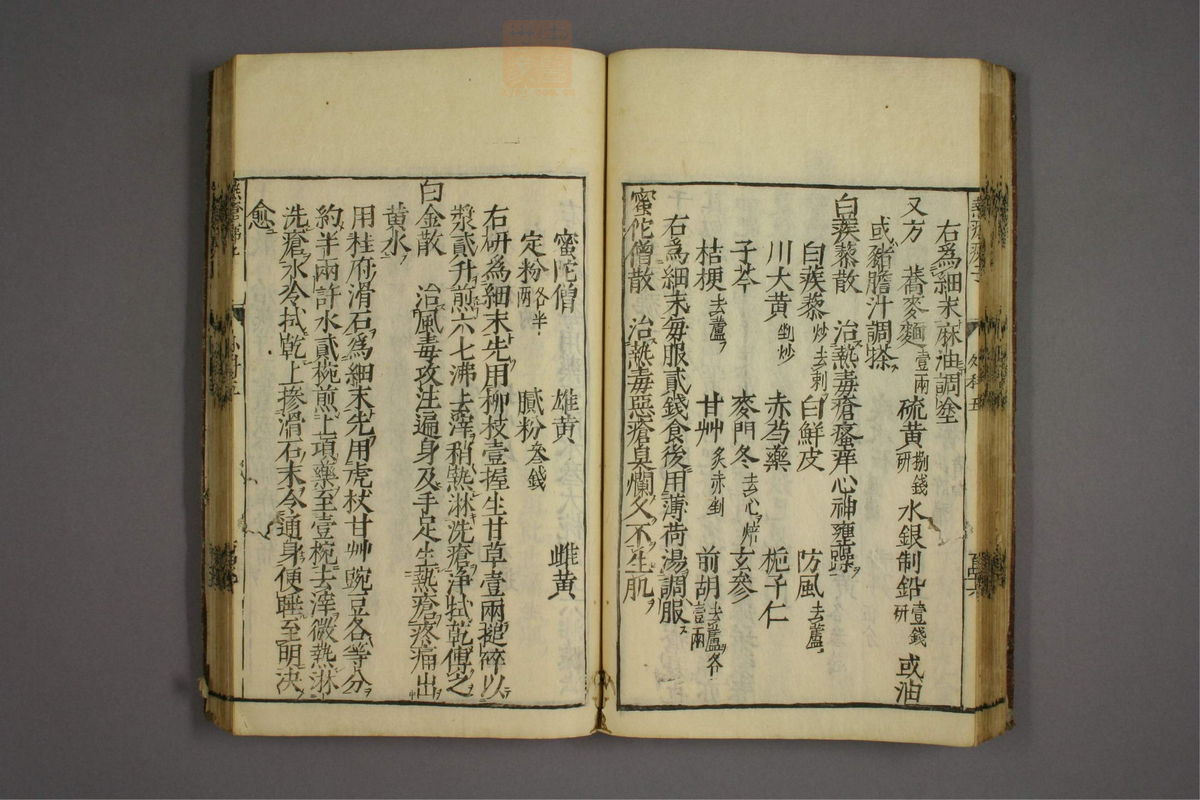 右為細末麻油調塗
又方 蕎麥麵壹兩 硫黃捌錢研 水銀制鉛壹錢研 或油
或豬膽汁調搽
白蒺藜散 治熱毒瘡瘙痒心神壅躁
白蒺藜炒去刺 白鮮皮 防風去蘆
川大黃剉炒 赤芍藥 梔子仁
子芩 麥門冬去心焙 玄參
桔梗去蘆 甘艸炙赤剉 前胡去蘆各壹兩
右為細末每服貳錢食後用薄荷湯調服
蜜佗僧散 治熱毒惡瘡臭爛久不生肌
蜜陀僧 雄黃 雌黃
定粉各半兩 膩粉叁錢
右研為細末先用柳枝壹握生甘草壹兩搥碎以
漿貳升煎六七沸去滓稍熱淋洗瘡淨拭乾傅之
白金散 治風毒攻注遍身及手足生熱瘡疼痛出
黃水
用桂府滑石為細末先用虎杖甘艸豌豆各等分
約半兩許水貳椀煎上項藥至壹椀去滓微熱淋
洗瘡水冷拭乾上摻滑石末令通身便睡至明決
愈